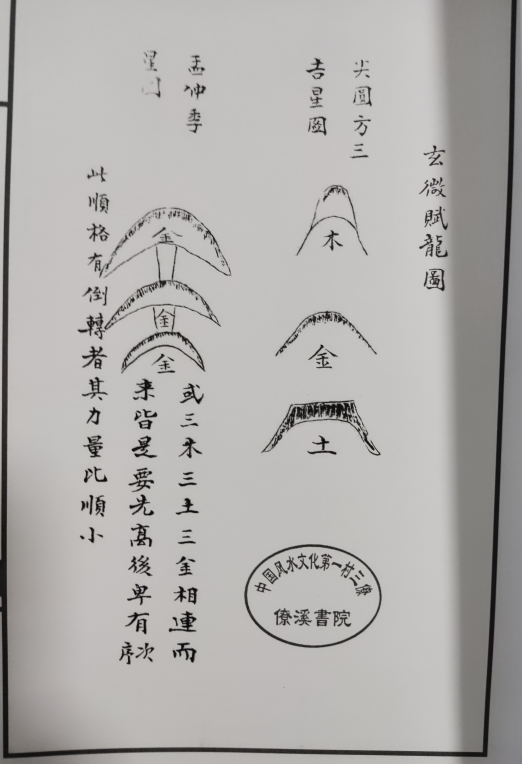 玄微賦龍圖
尖圓方三
吉星圖
木
金
土
中国风水文化第一村三僚
僚溪書院
孟仲季
星圖
金
金
金
或三木三土三金相連而
来皆是要先高後卑有次序
此順格有倒轉者其力量比順小